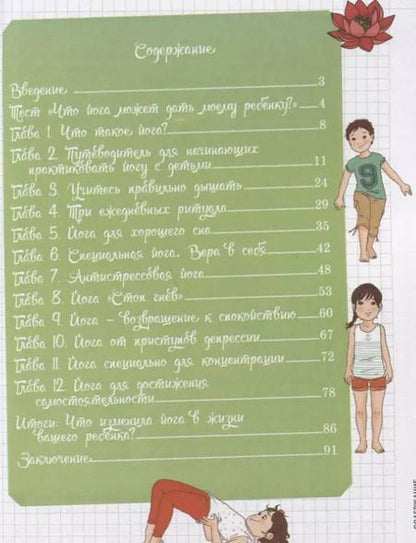 Содержание
Введение 3
Тест «Что йога может дать моему ребенку?» 4
Глава 1. Что такое йога? 8
Глава 2. Путеводитель для начинающих
практиковать йогу с детьми 11
Глава 3. Учитесь правильно дышать 24
Глава 4. Три ежедневных ритуала 29
Глава 5. Йога для хорошего сна 35
Глава 6. Специальная йога. Вера в себя 42
Глава 7. Антистрессовая йога 48
Глава 8. Йога «Стоп гнев» 53
Глава 9. Йога – возвращение к спокойствию 60
Глава 10. Йога от приступов депрессии 67
Глава 11. Йога специально для концентрации 72
Глава 12. Йога для достижения
самостоятельности 78
Итоги: Что изменила йога в жизни
вашего ребенка? 86
Заключение 91
9
СОДЕРЖАНИЕ